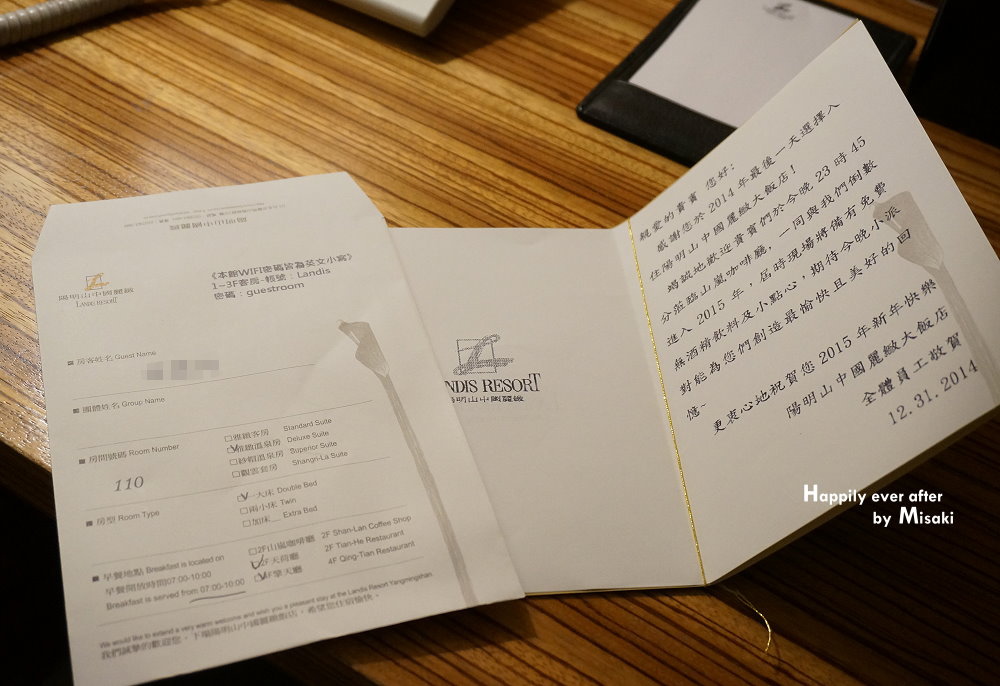 陽明山中國麗緻
LANDIS RESORT
《本館WIFI密碼皆為英文小寫》
1~3F客房-帳號：Landis
密碼：guestroom
房客姓名 Guest Name
團體姓名 Group Name
房間號碼 Room Number
110
□雅緻客房 Standard Suite
□精緻溫泉房 Deluxe Suite
□紗帽溫泉房 Superior Suite
□觀雲套房 Shangri-La Suite
房型 Room Type
□一大床 Double Bed
□兩小床 Twin
□加床__ Extra Bed
早餐地點 Breakfast is located on
早餐開放時間07:00-10:00
Breakfast is served from 07:00-10:00
□2F山嵐咖啡廳 2F Shan-Lan Coffee Shop
□2F天荷廳 2F Tian-He Restaurant
□4F擎天廳 4F Qing-Tian Restaurant
We would like to extend a very warm welcome and wish you a pleasant stay at the Landis Resort Yangmingshan.
我們誠摯的歡迎您，下榻陽明山中國麗緻大飯店，希望您住宿愉快。
LANDIS RESORT
陽明山中國麗緻
親愛的貴賓 您好;
感謝您於2014年最後一天選擇入
住陽明山中國麗緻大飯店!
竭誠地歡迎貴賓們於今晚23時45
分蒞臨山嵐咖啡廳，一同與我們倒數
進入2015年，屆時現場將備有免費
無酒精飲料及小點心，期待今晚小派
對能為您們創造最愉快且美好的回
憶~
更衷心地祝賀您2015年新年快樂
陽明山中國麗緻大飯店
全體員工敬賀
12.31.2014
Happily ever after
by Misaki